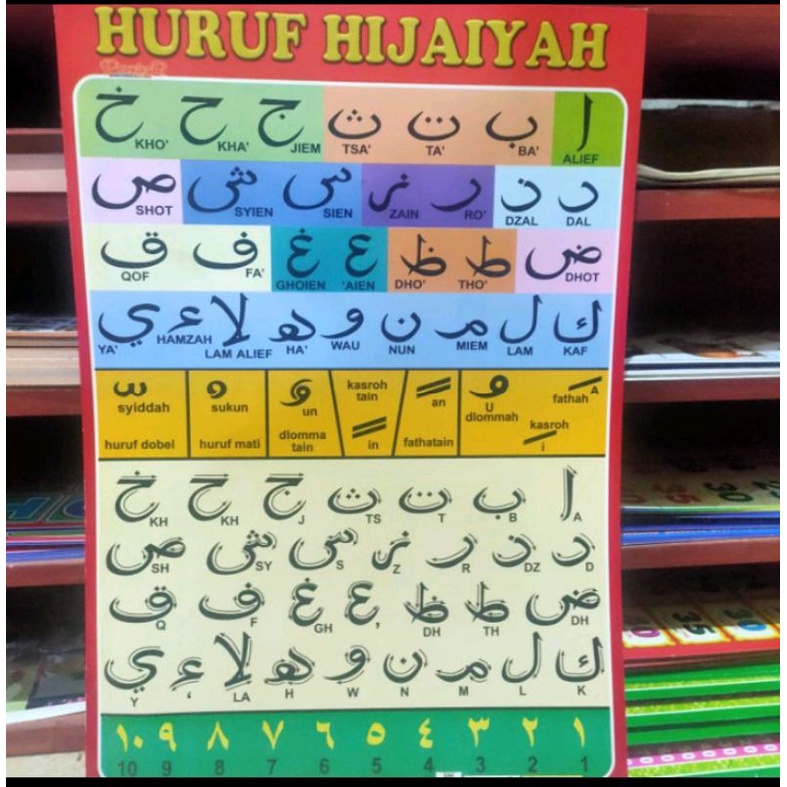 HURUF HIJAIYAH
ا ب ت ث ج ح خ
ALIEF BA' TA' TSA' JIEM KHA' KHO'
د ذ ر ز س ش ص
DAL DZAL RO' ZAIN SIEN SYIEN SHOT
ض ط ظ ع غ ف ق
DHOT THO' DHO' 'AIEN GHOIEN FA' QOF
ك ل م ن و ه لا ء ي
KAF LAM MIEM NUN WAU HA' LAM ALIEF HAMZAH YA'
A fathah
kasroh i
U dlommah
an fathatain
kasroh tain in
un dlomma tain
sukun huruf mati
syiddah huruf dobel
ا ب ت ث ج ح خ
A B T TS J KH KH
د ذ ر ز س ش ص
D DZ R Z S SY SH
ض ط ظ ع غ ف ق
DH TH DH ' GH F Q
ك ل م ن و ه لا ء ي
K L M N W H LA ' Y
١ ٢ ٣ ٤ ٥ ٦ ٧ ٨ ٩ ١٠
1 2 3 4 5 6 7 8 9 10